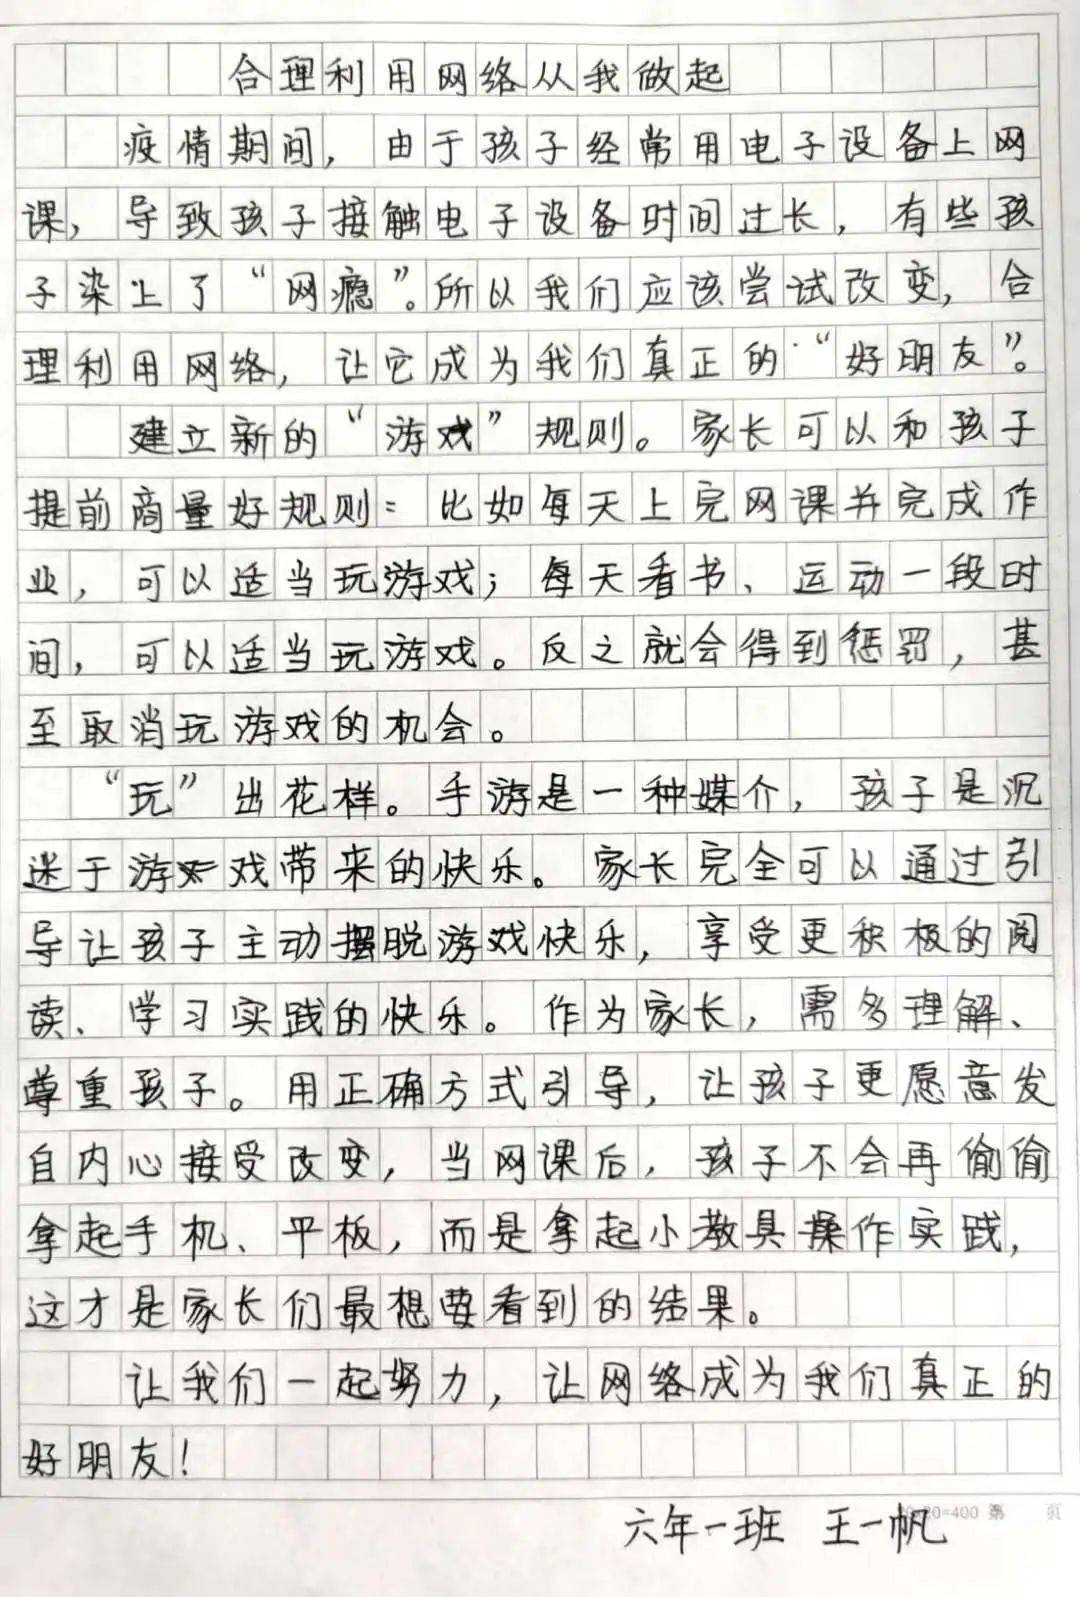 合理利用网络从我做起
疫情期间，由于孩子经常用电子设备上网
课，导致孩子接触电子设备时间过长，有些孩
子染上了“网瘾”。所以我们应该尝试改变，合
理利用网络，让它成为我们真正的“好朋友”。
建立新的“游戏”规则。家长可以和孩子
提前商量好规则：比如每天上完网课并完成作
业，可以适当玩游戏；每天看书、运动一段时
间，可以适当玩游戏。反之就会得到惩罚，甚
至取消玩游戏的机会。
“玩”出花样。手游是一种媒介，孩子是沉
迷于游戏带来的快乐。家长完全可以通过引
导让孩子主动摆脱游戏快乐，享受更积极的阅
读、学习实践的快乐。作为家长，需多理解、
尊重孩子。用正确方式引导，让孩子更愿意发
自内心接受改变，当网课后，孩子不会再偷偷
拿起手机、平板，而是拿起小教具操作实践，
这才是家长们最想要看到的结果。
让我们一起努力，让网络成为我们真正的
好朋友！
20×20=400 第 页
六年一班 王一帆